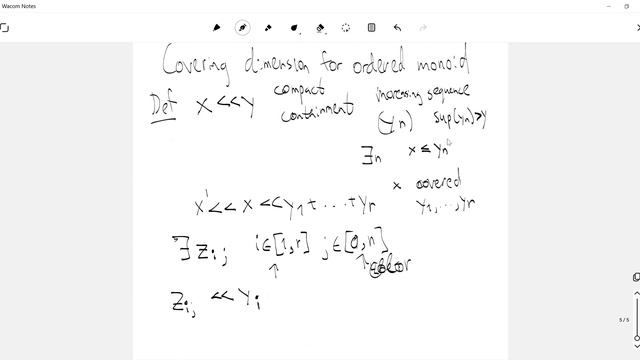 Wacom Notes
Covering dimension for ordered monoid
Def x << y compact containment increasing sequence (yn) sup(yn) > y
∃n x ≤ yn
x covered y1, ..., yn
x' << x << y1 + ... + yn
∃ zij i∈[1,r] j∈[0,n]
↑ ↑ color
zij << yi
5 / 5